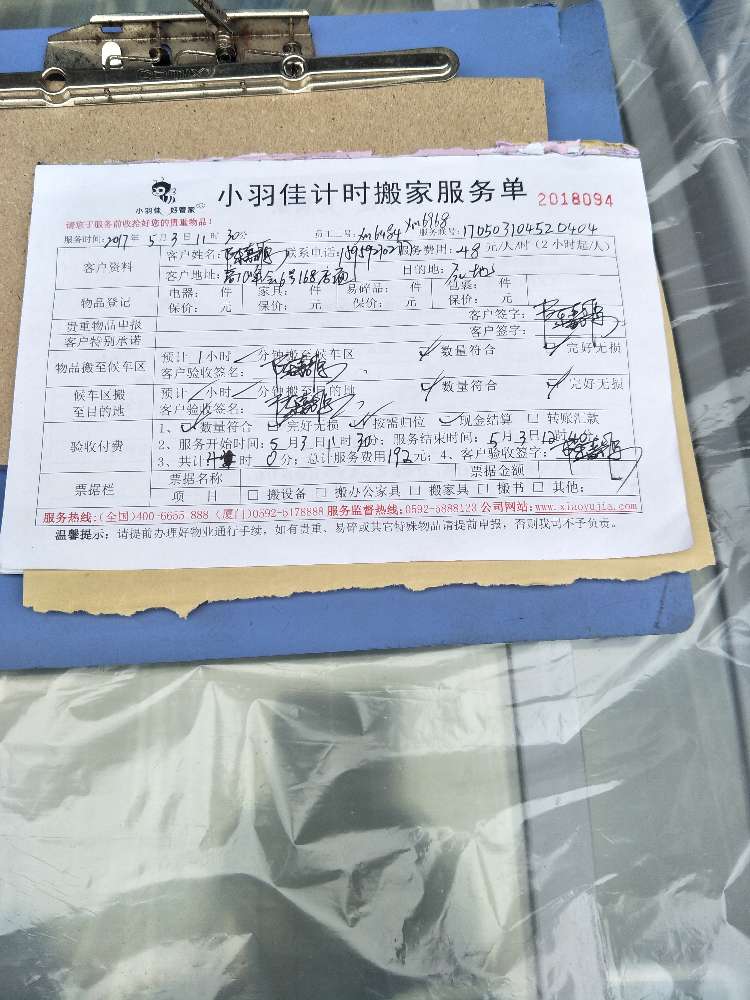 小羽佳 好管家
小羽佳计时搬家服务单 2018094
请您于服务前收拾好您的贵重物品！
服务时间：2017年5月3日11时30分 员工工号：xm6484 xm6168 服务账号：170503104520404
客户资料
客户姓名： 联系电话： 服务费用：48元/人/时（2小时起/人）
客户地址： 目的地：
物品登记
电器： 件 家具： 件 易碎品： 件 包裹： 件
保价： 元 保价： 元 保价： 元 保价： 元
贵重物品申报 客户签字：
客户特别承诺 客户签字：
物品搬至候车区
预计 小时 分钟搬至候车区 数量符合 完好无损
客户验收签名：
候车区搬至目的地
预计 小时 分钟搬至目的地 数量符合 完好无损
客户验收签名：
验收付费
1、 数量符合 完好无损 按需归位 现金结算 转账汇款
2、服务开始时间：5月3日11时30分；服务结束时间：5月3日12时40分；
3、共计 时0分；总计服务费用192元；4、客户验收签字：
票据栏
票据名称 票据金额
项 目 搬设备 搬办公家具 搬家具 搬书 其他：
服务热线：(全国)400-6655 888 (厦门)0592-5178888 服务监督热线：0592-5888123 公司网站：www.xiaoyujia.com
温馨提示：请提前办理好物业通行手续，如有贵重、易碎或其它特殊物品请提前申报，否则我司不予负责。